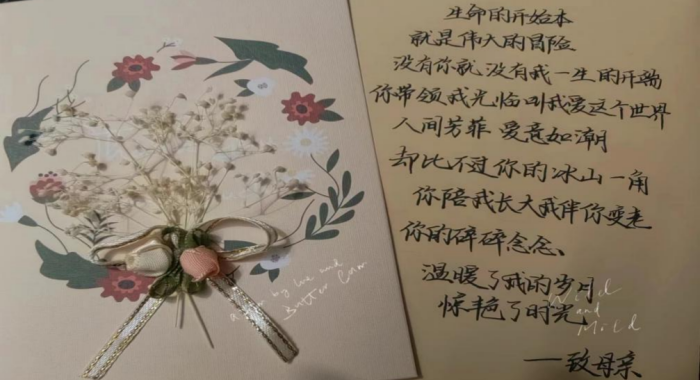 生命的开始本
就是伟大的冒险
没有你就没有我一生的开端
你带领我光临叫我爱这个世界
人间芳菲爱意如潮
却比不过你的冰山一角
你陪我长大我伴你变老
你的碎碎念念、
温暖了我的岁月
惊艳了时光
——致母亲
by love and
Butter Corn
Wild
and
Mild